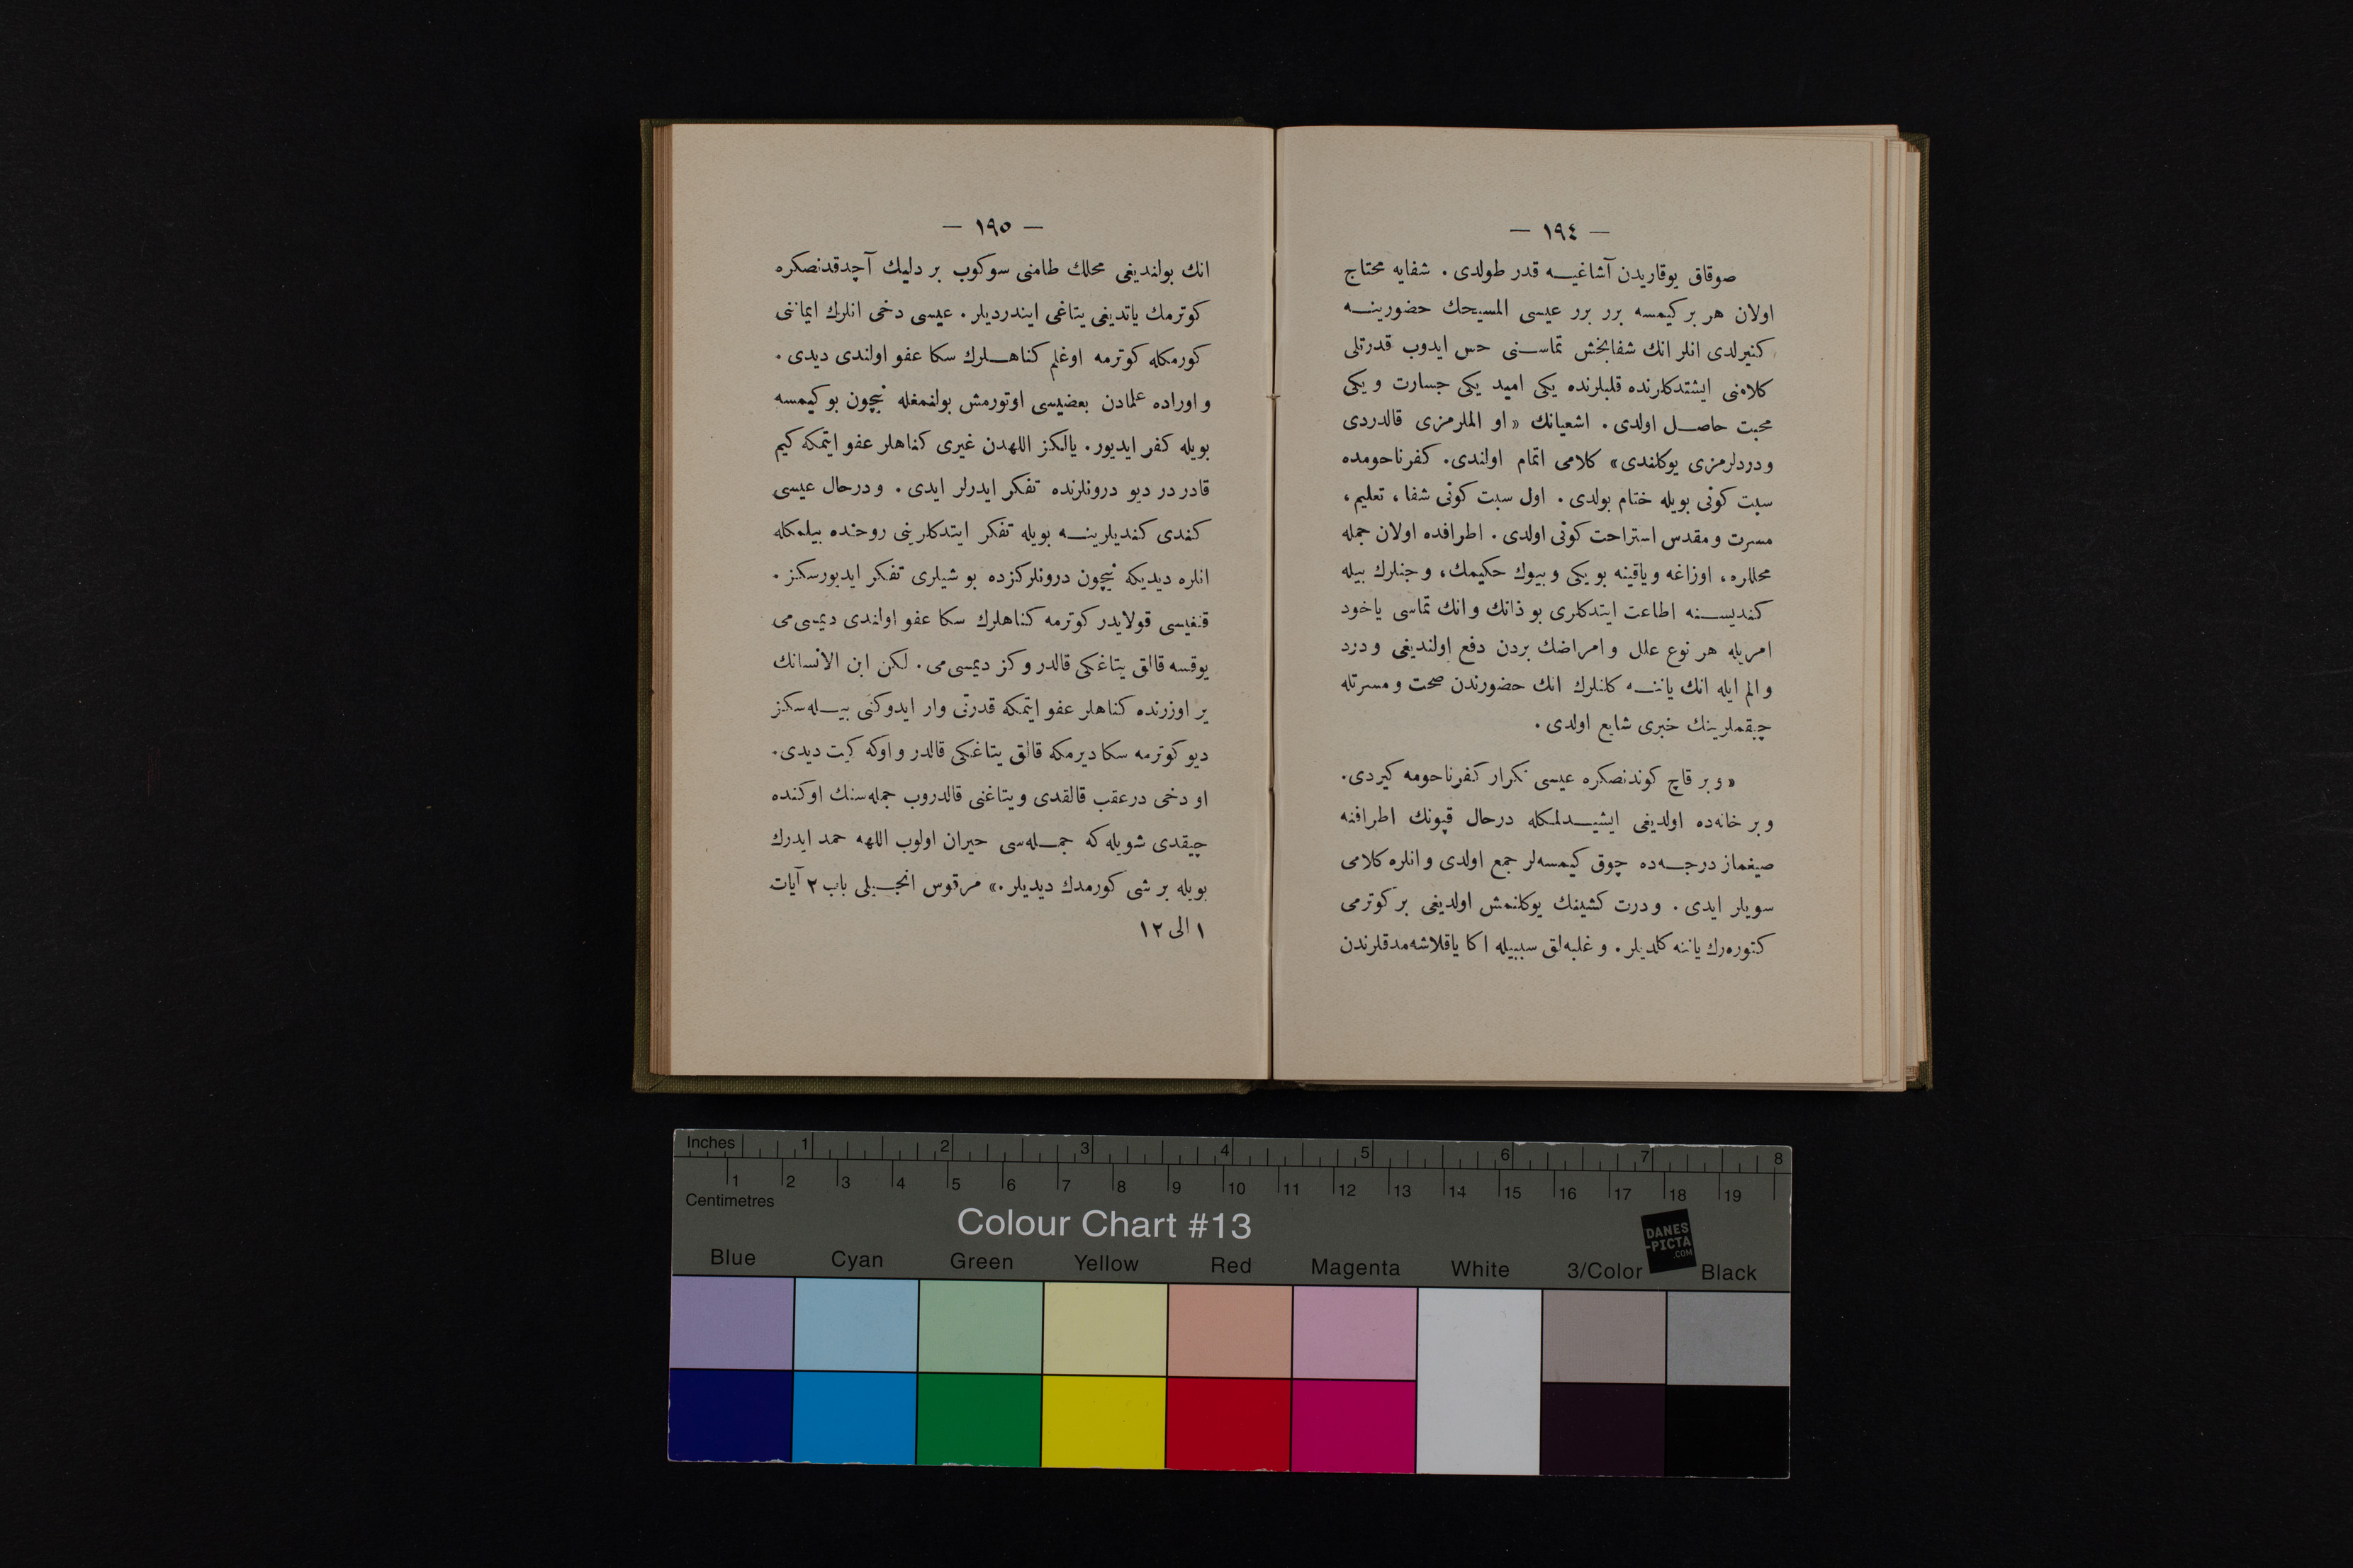 — ١٩٤ —
صوقاق يوقاريدن آشاغيه قدر طولدى . شفايه محتاج
اولان هر بر كيمسه برر برر عيسى المسيحك حضورينه
كتيرلدى انلر انك شفابخش تماسنى حس ايدوب قدرتلى
كلامنى ايشتدكلرنده قلبلرنده يكى اميد يكى جسارت و يكى
محبت حاصل اولدى . اشعيانك « او الملرمزى قالدردى
و دردلرمزى يوكلندى » كلامى اتمام اولندى . كفرناحومده
سبت كونى بويله ختام بولدى . اول سبت كونى شفا ، تعليم ،
مسرت و مقدس استراحت كونى اولدى . اطرافده اولان جمله
محللره ، اوزاغه و ياقينه بو يكى و بيوك حكيمك ، و جنلرك بيله
كنديسنه اطاعت ايتدكلرى بو ذاتك و انك تماسى ياخود
امريله هر نوع علل و امراضك بردن دفع اولنديغى و درد
و الم ايله انك ياننه كلنلرك انك حضورندن صحت و مسرتله
چيقملرينك خبرى شايع اولدى .
« و بر قاچ كوندنصكره عيسى تكرار كفرناحومه كيردى .
و بر خانه‌ده اولديغى ايشيدلمكله درحال قپونك اطرافنه
صيغماز درجه‌ده چوق كيمسه‌لر جمع اولدى و انلره كلامى
سويلر ايدى . و درت كشينك يوكلنمش اولديغى بر كوترمى
كتوره‌رك ياننه كلديلر . و غلبه‌لق سببيله اكا ياقلاشه‌مدقلرندن
— ١٩٥ —
انك بولنديغى محلك طامنى سوكوب بر دليك آچدقدنصكره
كوترمك ياتديغى يتاغى ايندرديلر . عيسى دخى انلرك ايماننى
كورمكله كوترمه اوغلم كناهلرك سكا عفو اولندى ديدى .
و اوراده علمادن بعضيسى اوتورمش بولنمغله نيچون بو كيمسه
بويله كفر ايديور . يالكز اللهدن غيرى كناهلر عفو ايتمكه كيم
قادر در ديو درونلرنده تفكر ايدرلر ايدى . و درحال عيسى
كندى كنديلرينه بويله تفكر ايتدكلرينى روحنده بيلمكله
انلره ديديكه نيچون درونلركزده بو شيلرى تفكر ايديورسكز .
قنغيسى قولايدر كوترمه كناهلرك سكا عفو اولندى ديمسى مى
يوقسه قالق يتاغكى قالدر و كز ديمسى مى . لكن ابن الانسانك
ير اوزرنده كناهلر عفو ايتمكه قدرتى وار ايدوكنى بيله‌سكز
ديو كوترمه سكا ديرمكه قالق يتاغكى قالدر و اوكه كيت ديدى .
او دخى درعقب قالقدى و يتاغنى قالدروب جمله‌سنك اوكنده
چيقدى شويله كه جمله‌سى حيران اولوب اللهه حمد ايدرك
بويله بر شى كورمدك ديديلر . » مرقوس انجيلى باب ٢ آيات
١ الى ١٢
Inches 1 2 3 4 5 6 7 8
1 2 3 4 5 6 7 8 9 10 11 12 13 14 15 16 17 18 19
Centimetres
Colour Chart #13
DANES
-PICTA
.COM
Blue Cyan Green Yellow Red Magenta White 3/Color Black